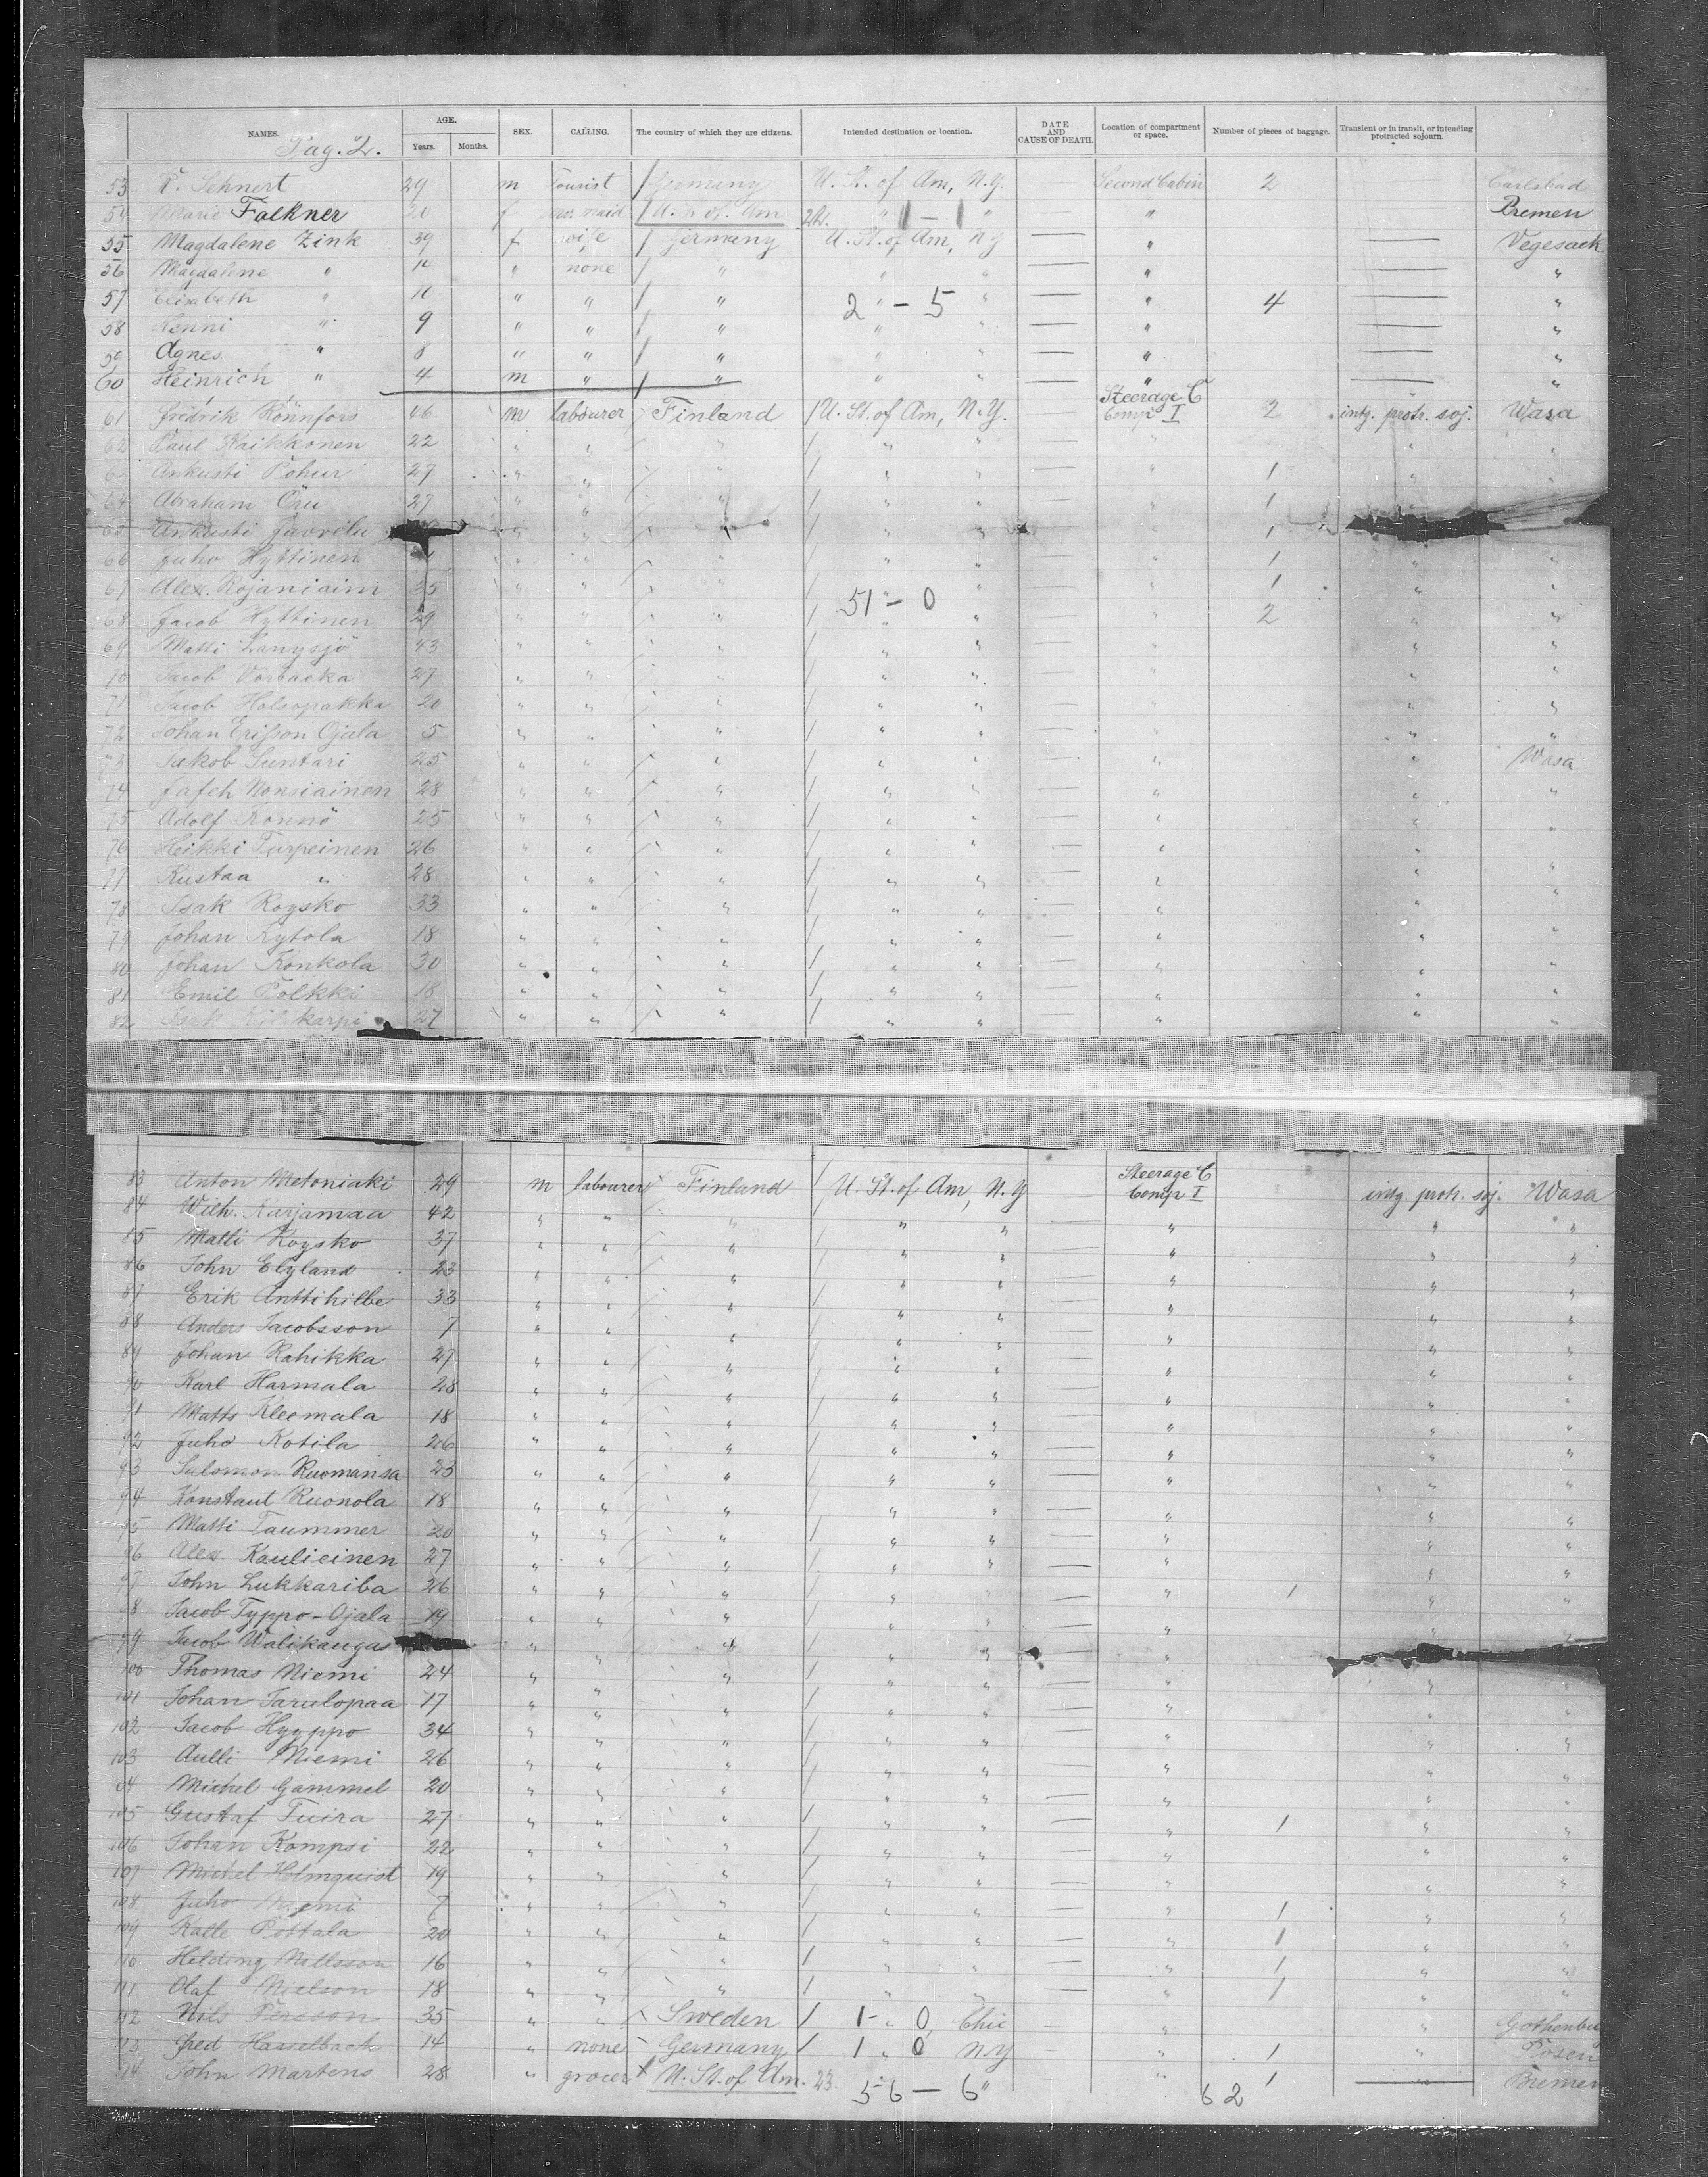 NAMES. AGE. Years. Months. SEX. CALLING. The country of which they are citizens. Intended destination or location. DATE AND CAUSE OF DEATH. Location of compartment or space. Number of pieces of baggage. Transient or in transit, or intending protracted sojourn.
Pag. 2.
53 Schnert 29 m Tourist Germany U. St. of Am, N.Y. — Second Cabin 2 Carlsbad
54 Marie Falkner 20 f maid U. St. of Am " 1 — 1 " — " Bremen
55 Magdalene Zink 39 f wife Germany U. St. of Am, N.Y — " — Vegesack
56 Magdalene " " none " " " — " — "
57 Elisabeth " 10 " " " 2 " — 5 " — " 4 — "
58 Henni " 9 " " " " " — " — "
59 Agnes " 8 " " " " " — " — "
60 Heinrich " 4 m " " " " — " — "
61 Fredrik Rönnfors m labourer Finland U. St. of Am, N.Y. — Steerage C Comp I 2 intg. protr. soj. Wasa
62 Paul Raikkonen 22 " " " " " — " " "
63 Ankusti Pohur 27 " " " " " — " 1 " "
64 Abraham Öru 27 " " " " " — " 1 "
65 Ankusti " " " " " " 1
66 Juho Hyttinen " " " " " — " 1 " "
67 Alex. Rojaniaim 35 " " " " " — " 1 " "
51 — 0
68 Jacob Hyttinen 29 " " " " " — " 2 " "
69 Matti Langsjö 43 " " " " " — " " "
70 Jacob Vorbacka 27 " " " " " — " " "
71 Jacob Holsopakka 20 " " " " " — " " "
72 Johan Erisson Ojala 5 " " " " " — " " "
73 Jakob Suntari 25 " " " " " — " " Wasa
74 Jafeh Nonsiainen 28 " " " " " — " " "
75 Adolf Ronnö 25 " " " " " — " " "
76 Heikki Turpeinen 26 " " " " " — " " "
77 Kustaa " 28 " " " " " — " " "
78 Isak Roysko 33 " " " " " — " " "
79 Johan Kytola 18 " " " " " — " "
80 Johan Konkola 30 " " " " " — " " "
81 Emil Polkki 18 " " " " " — " " "
82 Isak 27 " " " " " — " " "
83 Anton Metoniaki 29 m labourer Finland U. St. of Am, N.Y — Steerage C Comp I intg protr. soj. Wasa
84 Wilh. Karjamaa 42 " " " " " — " " "
85 Matti Roysko 37 " " " " " — " " "
86 John Elyland 23 " " " " " — " " "
87 Erik Anttihilbe 33 " " " " " — " " "
88 Anders Jacobsson 7 " " " " " — " " "
89 Johan Rahikka 27 " " " " " — " " "
90 Karl Harmala 28 " " " " " — " " "
91 Matts Kleemala 18 " " " " " — " " "
92 Juho Kotila 26 " " " " " — " " "
93 Salomon Ruomansa 23 " " " " " — " " "
94 Konstant Ruonola 18 " " " " " — " " "
95 Matti Taummer 20 " " " " " — " " "
96 Alex. Kaulieinen 27 " " " " " — " " "
97 John Lukkariba 26 " " " " " — " 1 " "
98 Jacob Typpo-Ojala 19 " " " " " — " " "
99 Jacob Walikangas " " " " " — "
100 Thomas Niemi 24 " " " " " — " "
101 Johan Jarulopaa 17 " " " " " — " " "
102 Jacob Hyyppo 34 " " " " " — " " "
103 Aulli Niemi 26 " " " " " — " " "
104 Michel Gammel 20 " " " " " — " " "
105 Gustaf Tuira 27 " " " " " — " 1 " "
106 Johan Kompsi 22 " " " " " — " " "
107 Michel Holmquist 19 " " " " " — " " "
108 Juho Niemi 7 " " " " " — " 1 " "
109 Kalle Pottala 20 " " " " " — " 1 " "
110 Helding Nillsson 16 " " " " " — " 1 " "
111 Olaf Nielson 18 " " " " " — " 1 " "
112 Nils Persson 35 " " Sweden 1 - 0 Chic — " " Gothenbug
113 Fred Hasselbach 14 " none Germany 1 " 0 N.Y — " 1 " Posen
114 John Martens 28 " grocer U. St. of Am. 23. " 1 — Bremen
56 — 6 62